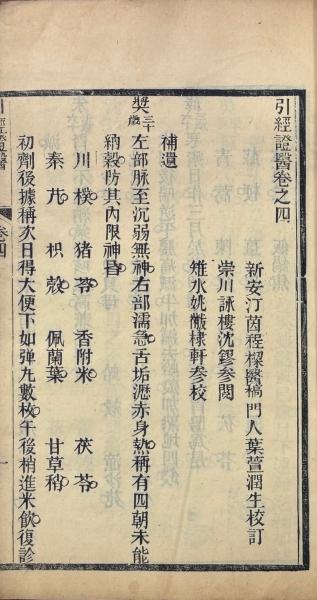 引經證醫卷之四
新安汀茵程樑醫稿 門人葉萱潤生校訂
崇川詠樓沈鏐參閱
雉水姚黻棣軒參校
補遺
樊三十歲 左部脉至沉弱無神右部濡急舌垢瀝赤身熱稱有四朝未能
納穀防其內限神昏
川樸 猪苓 香附米 茯苓
秦艽 枳殼 佩蘭葉 甘草稍
初劑後據稱次日得大便下如弹丸數枚午後稍進米飲復診
引經證醫 卷四 一